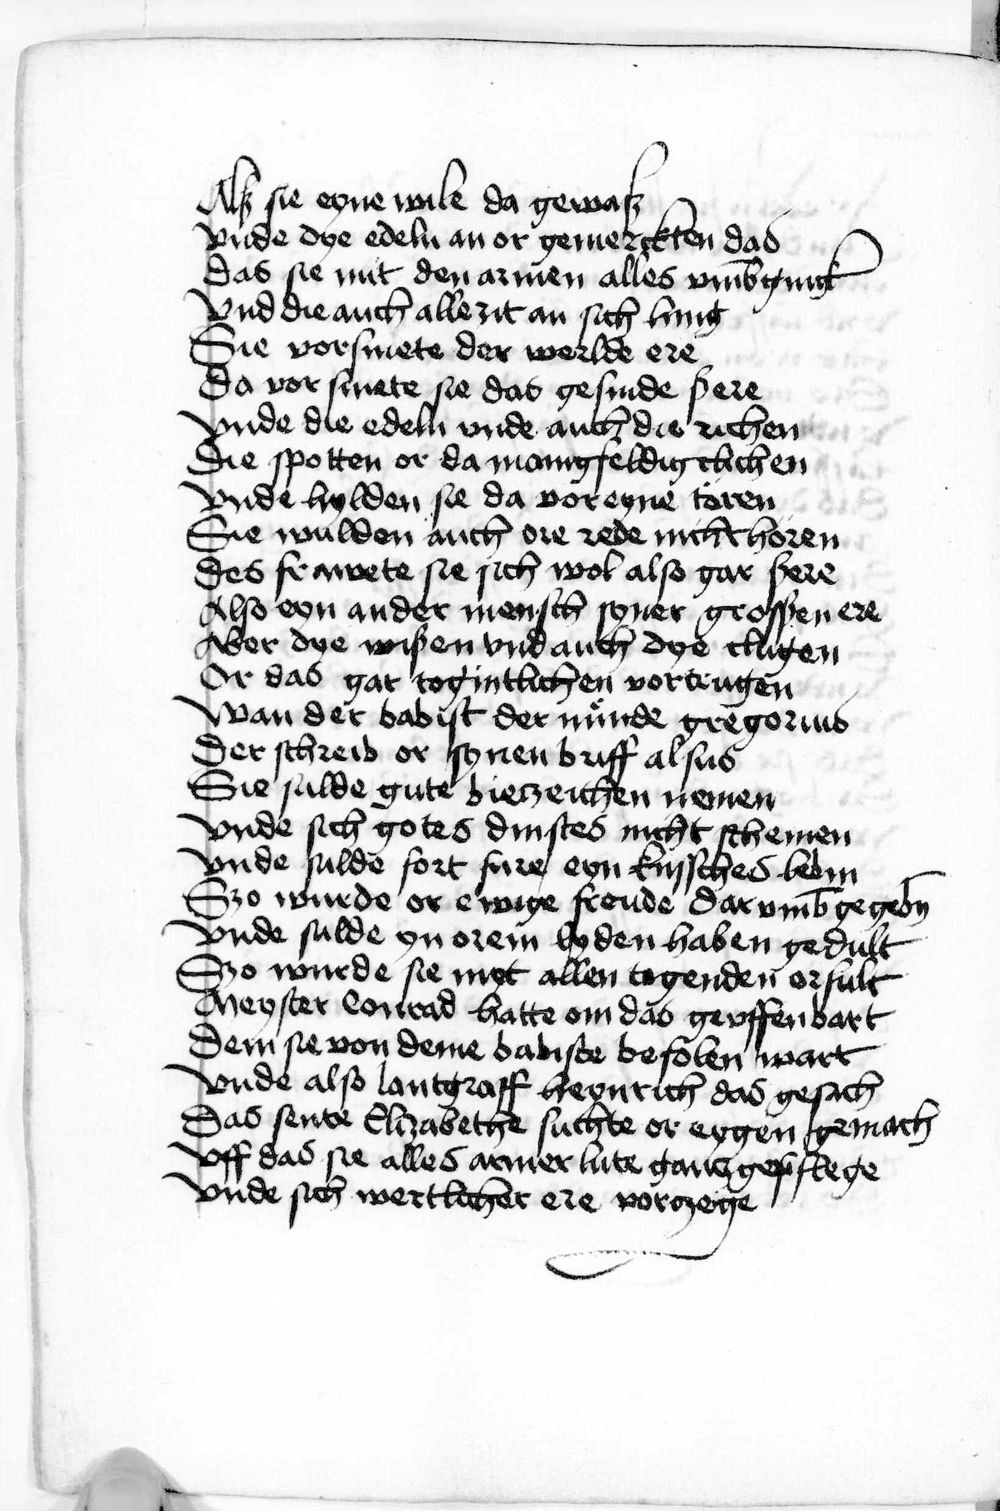 Alsz sie eyne wile da gewasz
vnde dye edeln an or gemerckten das
das sie mit den armen alles vmbging
Vnd die auch alle zit an sich hing
Sie vorsmete der werlde ere
Da vor smete sie das gesinde szere
vnde die edeln vnde auch die richen
Die spotten or da manigfeldigclichen
vnde hylden sie da vor eyne toren
Sie wulden auch ore rede nicht horen
des frawete sie sich wol also gar szere
Also eyn ander mensch syner groszen ere
Aber dye wiszen vnd auch dye clugen
Or das gar togintlichen vortrugen
Wan der babist der nunde gregorius
Der schreib or synen briff alsus
Sie sulde gute biezeichen nemen
vnde sich gotes dinstes nicht schemen
vnde sulde fort fure eyn kusches lebin
Szo wurde or ewige freude dar vmb gegebn
vnde sulde yn orem lyden haben gedult
Szo wurde sie myt allen togenden orfult
Meyster Conrad hatte om das geuffenbart
Dem sie von deme babiste befolen wart
vnde also lantgraff heynrich das gesach
Das sente Elizabethe suchte or eygen gemach
vff das sie alles armer lute gancz gepflege
vnde sich wertlicher ere vorczege